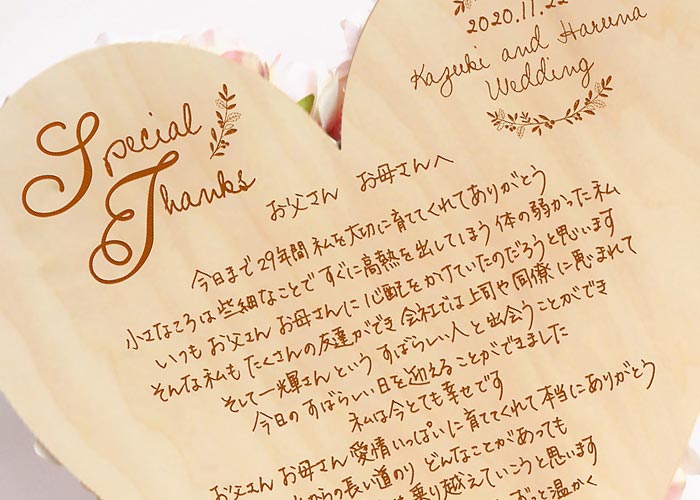 2020.11.22
Kazuki and Haruna
Wedding
Special
Thanks
お父さん お母さんへ
今日まで29年間 私を大切に育ててくれてありがとう
小さなころは些細なことですぐに高熱を出してしまう 体の弱かった私
いつも お父さん お母さんに 心配をかけていたのだろうと思います
そんな私も たくさんの友達ができ 会社では上司や同僚に恵まれて
そして一輝さんという すばらしい人と出会うことができ
今日のすばらしい日を迎えることができました
私は今とても幸せです
お父さん お母さん 愛情いっぱいに育ててくれて本当にありがとう
の長い道のり どんなことがあっても
乗り越えていこうと思います
温かく